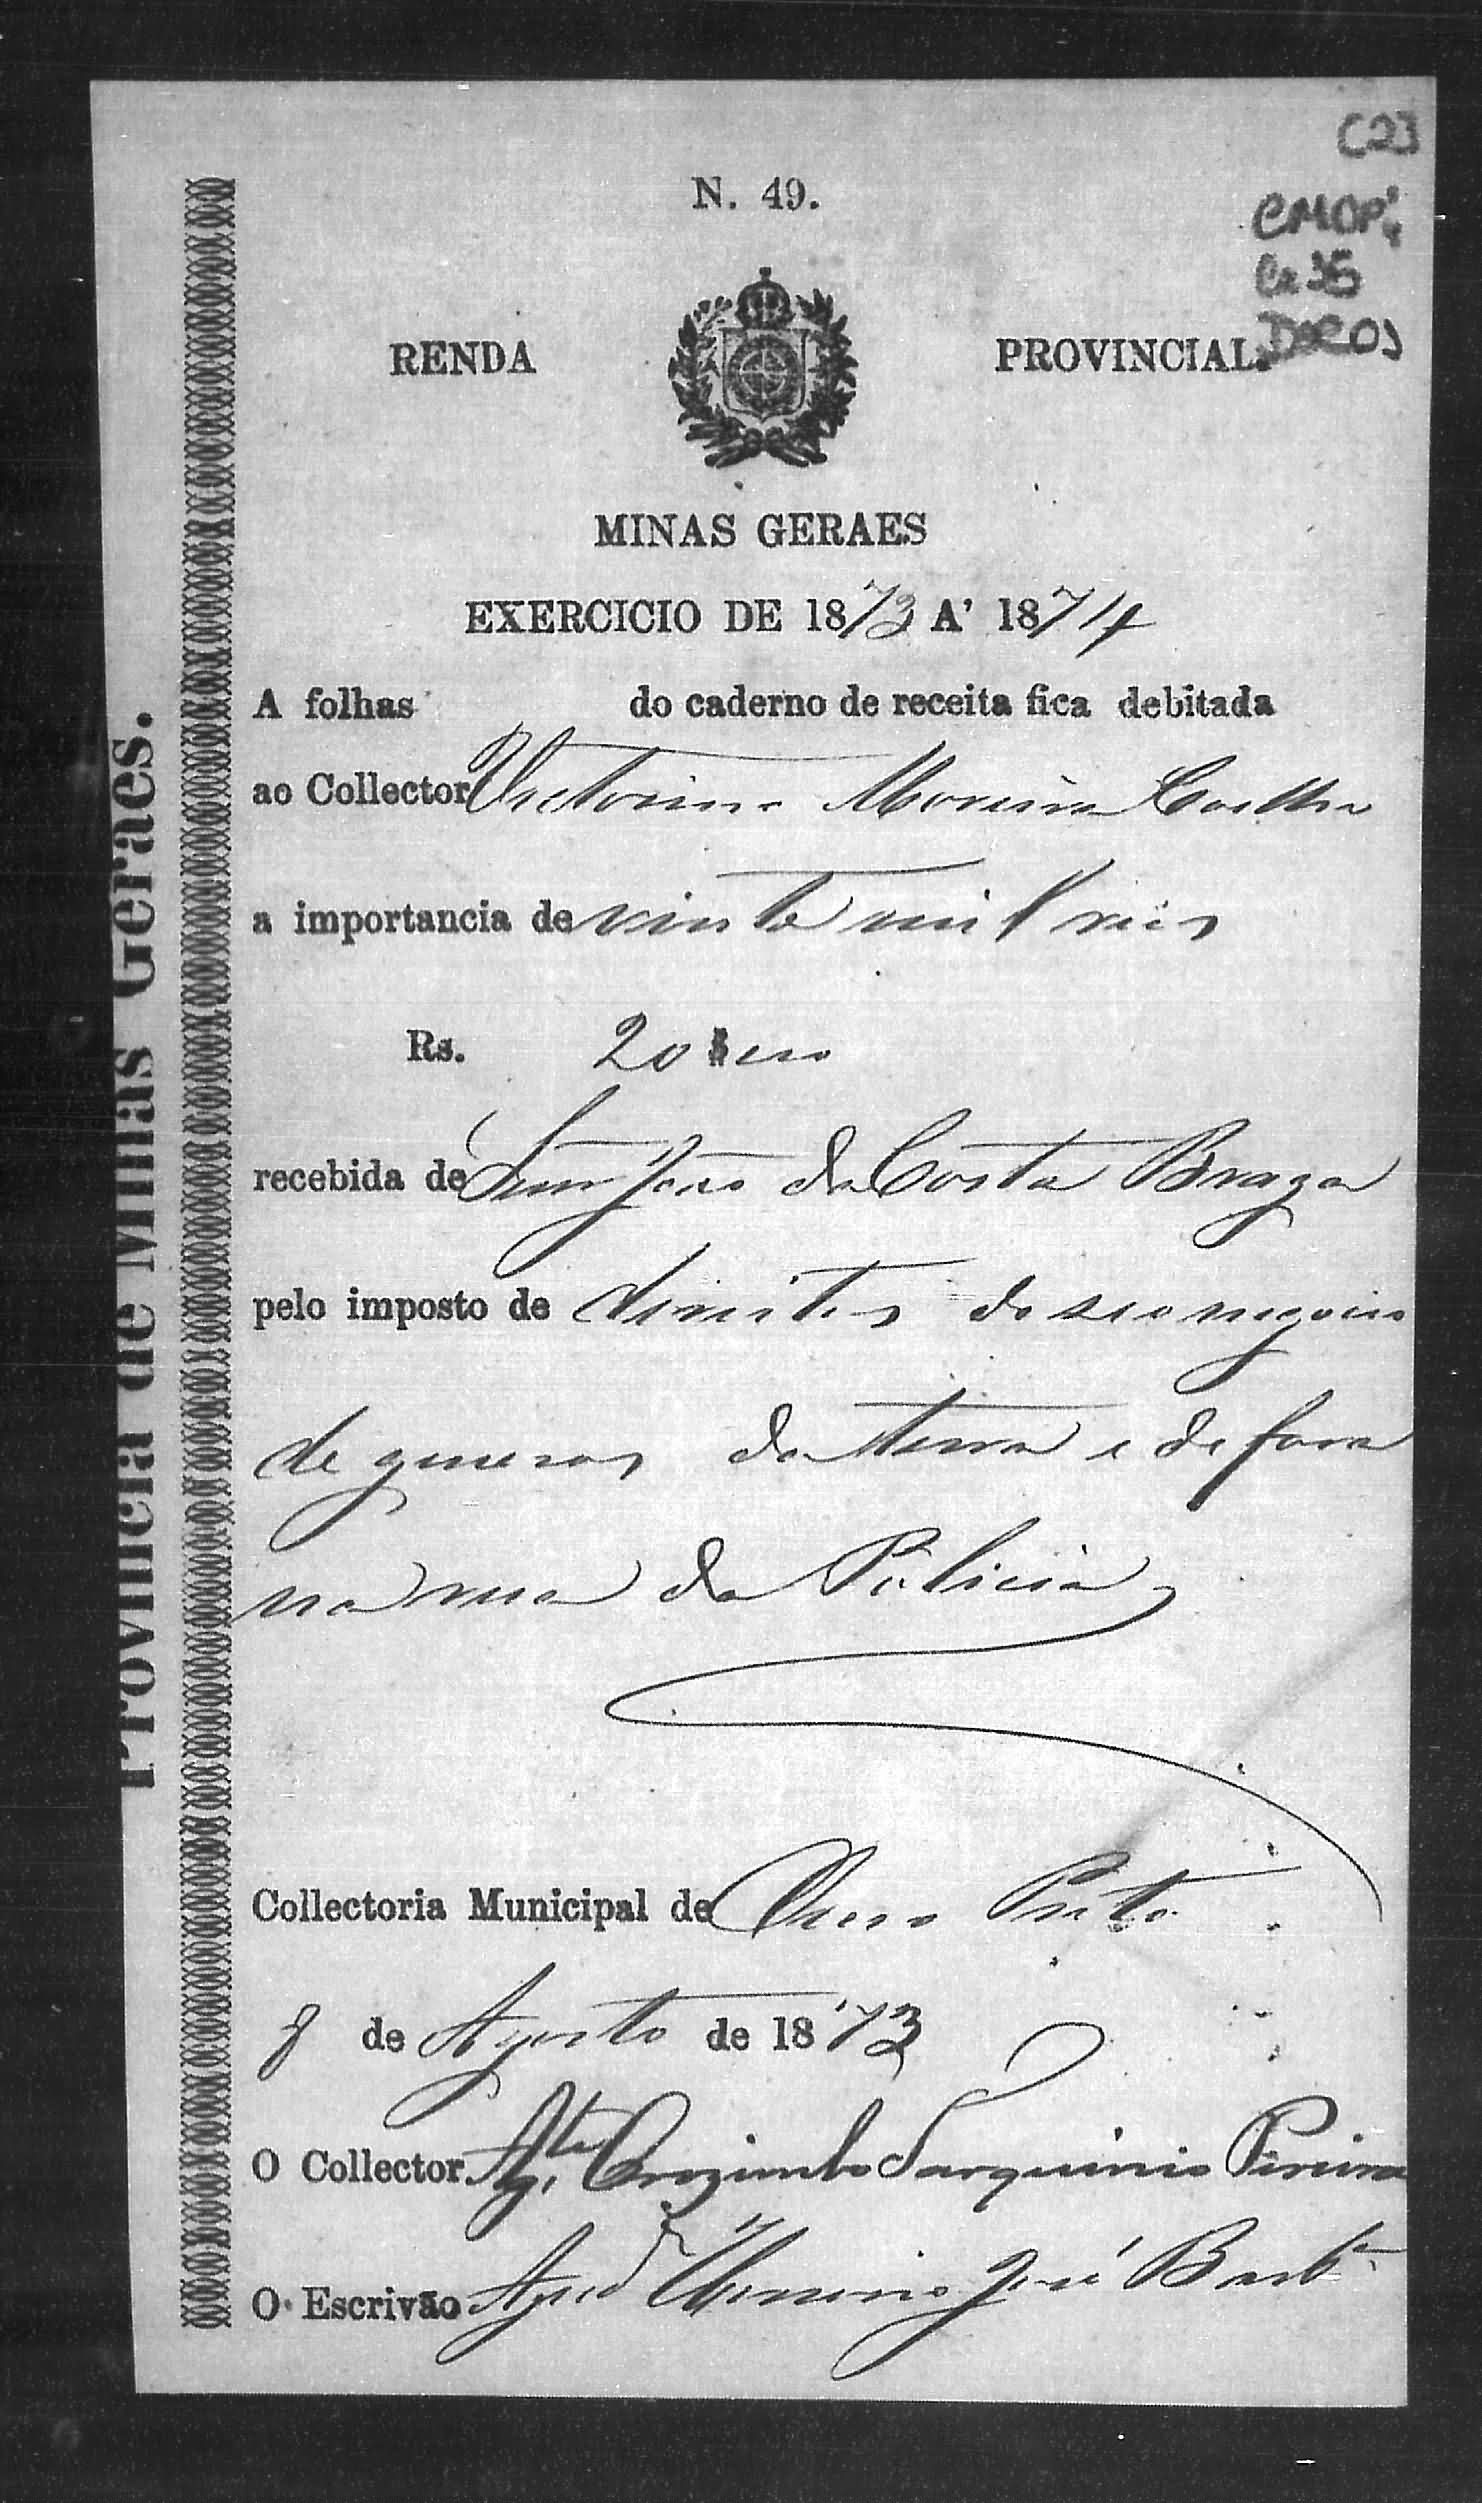 C23
N. 49.
CMOP
Cx 35
RENDA PROVINCIAL. Doc 03
MINAS GERAES
EXERCICIO DE 1873 A' 1874
A folhas do caderno de receita fica debitada
ao Collector Victorino Moreira Coelho
a importancia de vinte mil reis
Rs. 20$000
recebida de João da Costa Braga
pelo imposto de direitos do seo negocio
de generos da terra e de fora
na rua da Policia
Collectoria Municipal de Ouro Preto
8 de Agosto de 1873
O Collector Agte Orozimbo Tarquinio Pereira
O Escrivão José Barba
Provincia de Minas Geraes.